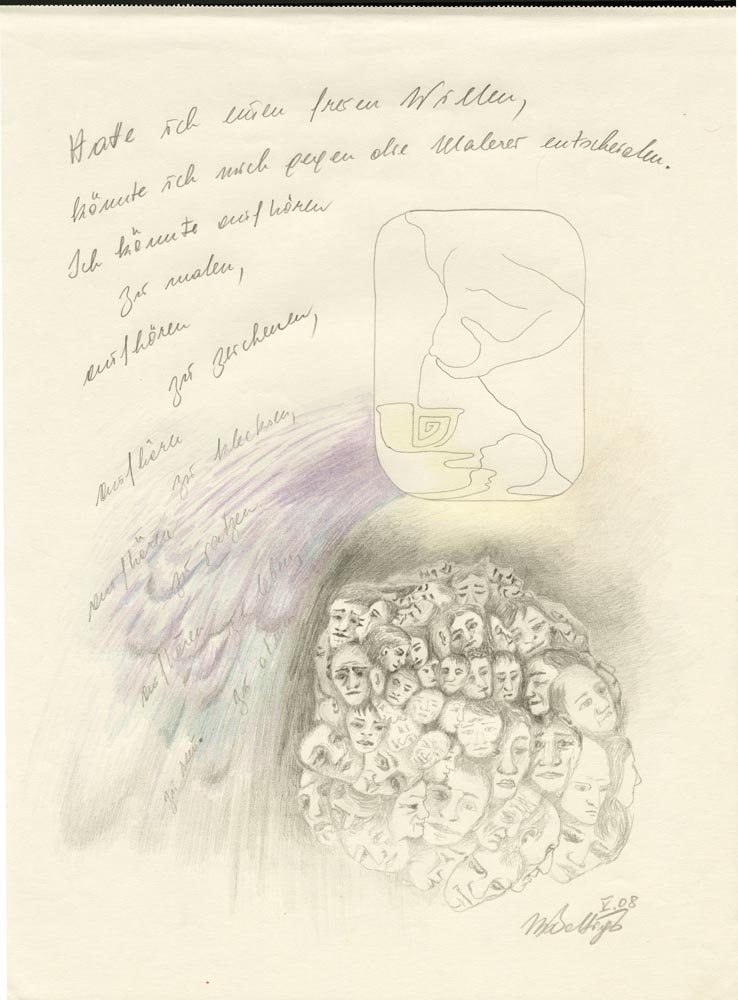 Hätte ich einen freien Willen,
könnte ich mich gegen die Malerei entscheiden.
Ich könnte aufhören
zu malen,
aufhören
zu zeichenen,
aufhören
zu klecksen,
aufhören
zu
aufhören
zu leben,
zu
zu sein.
V.08